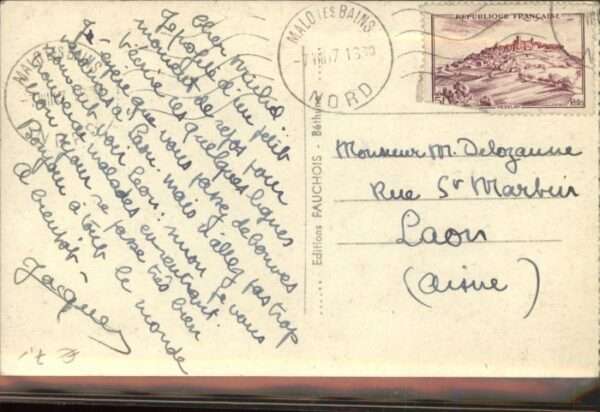 Cher Médéric
Je profite d'un petit
moment de repos pour
t'écrire ces quelques lignes
J'espère que vous passez de bonnes
vacances à Laon. mais n'allez pas trop
souvent voir Léon; mon
malades en rentrant. Je vous
mon séjour se passe très bien
Bonjour à tout le monde
A bientôt
Jacques
MALO LES BAINS
NORD
MALO LES BAINS
REPUBLIQUE FRANÇAISE
Editions FAUCHOIS - Béthune
Monsieur M. Delozanne
Rue St Martin
Laon
(Aisne)